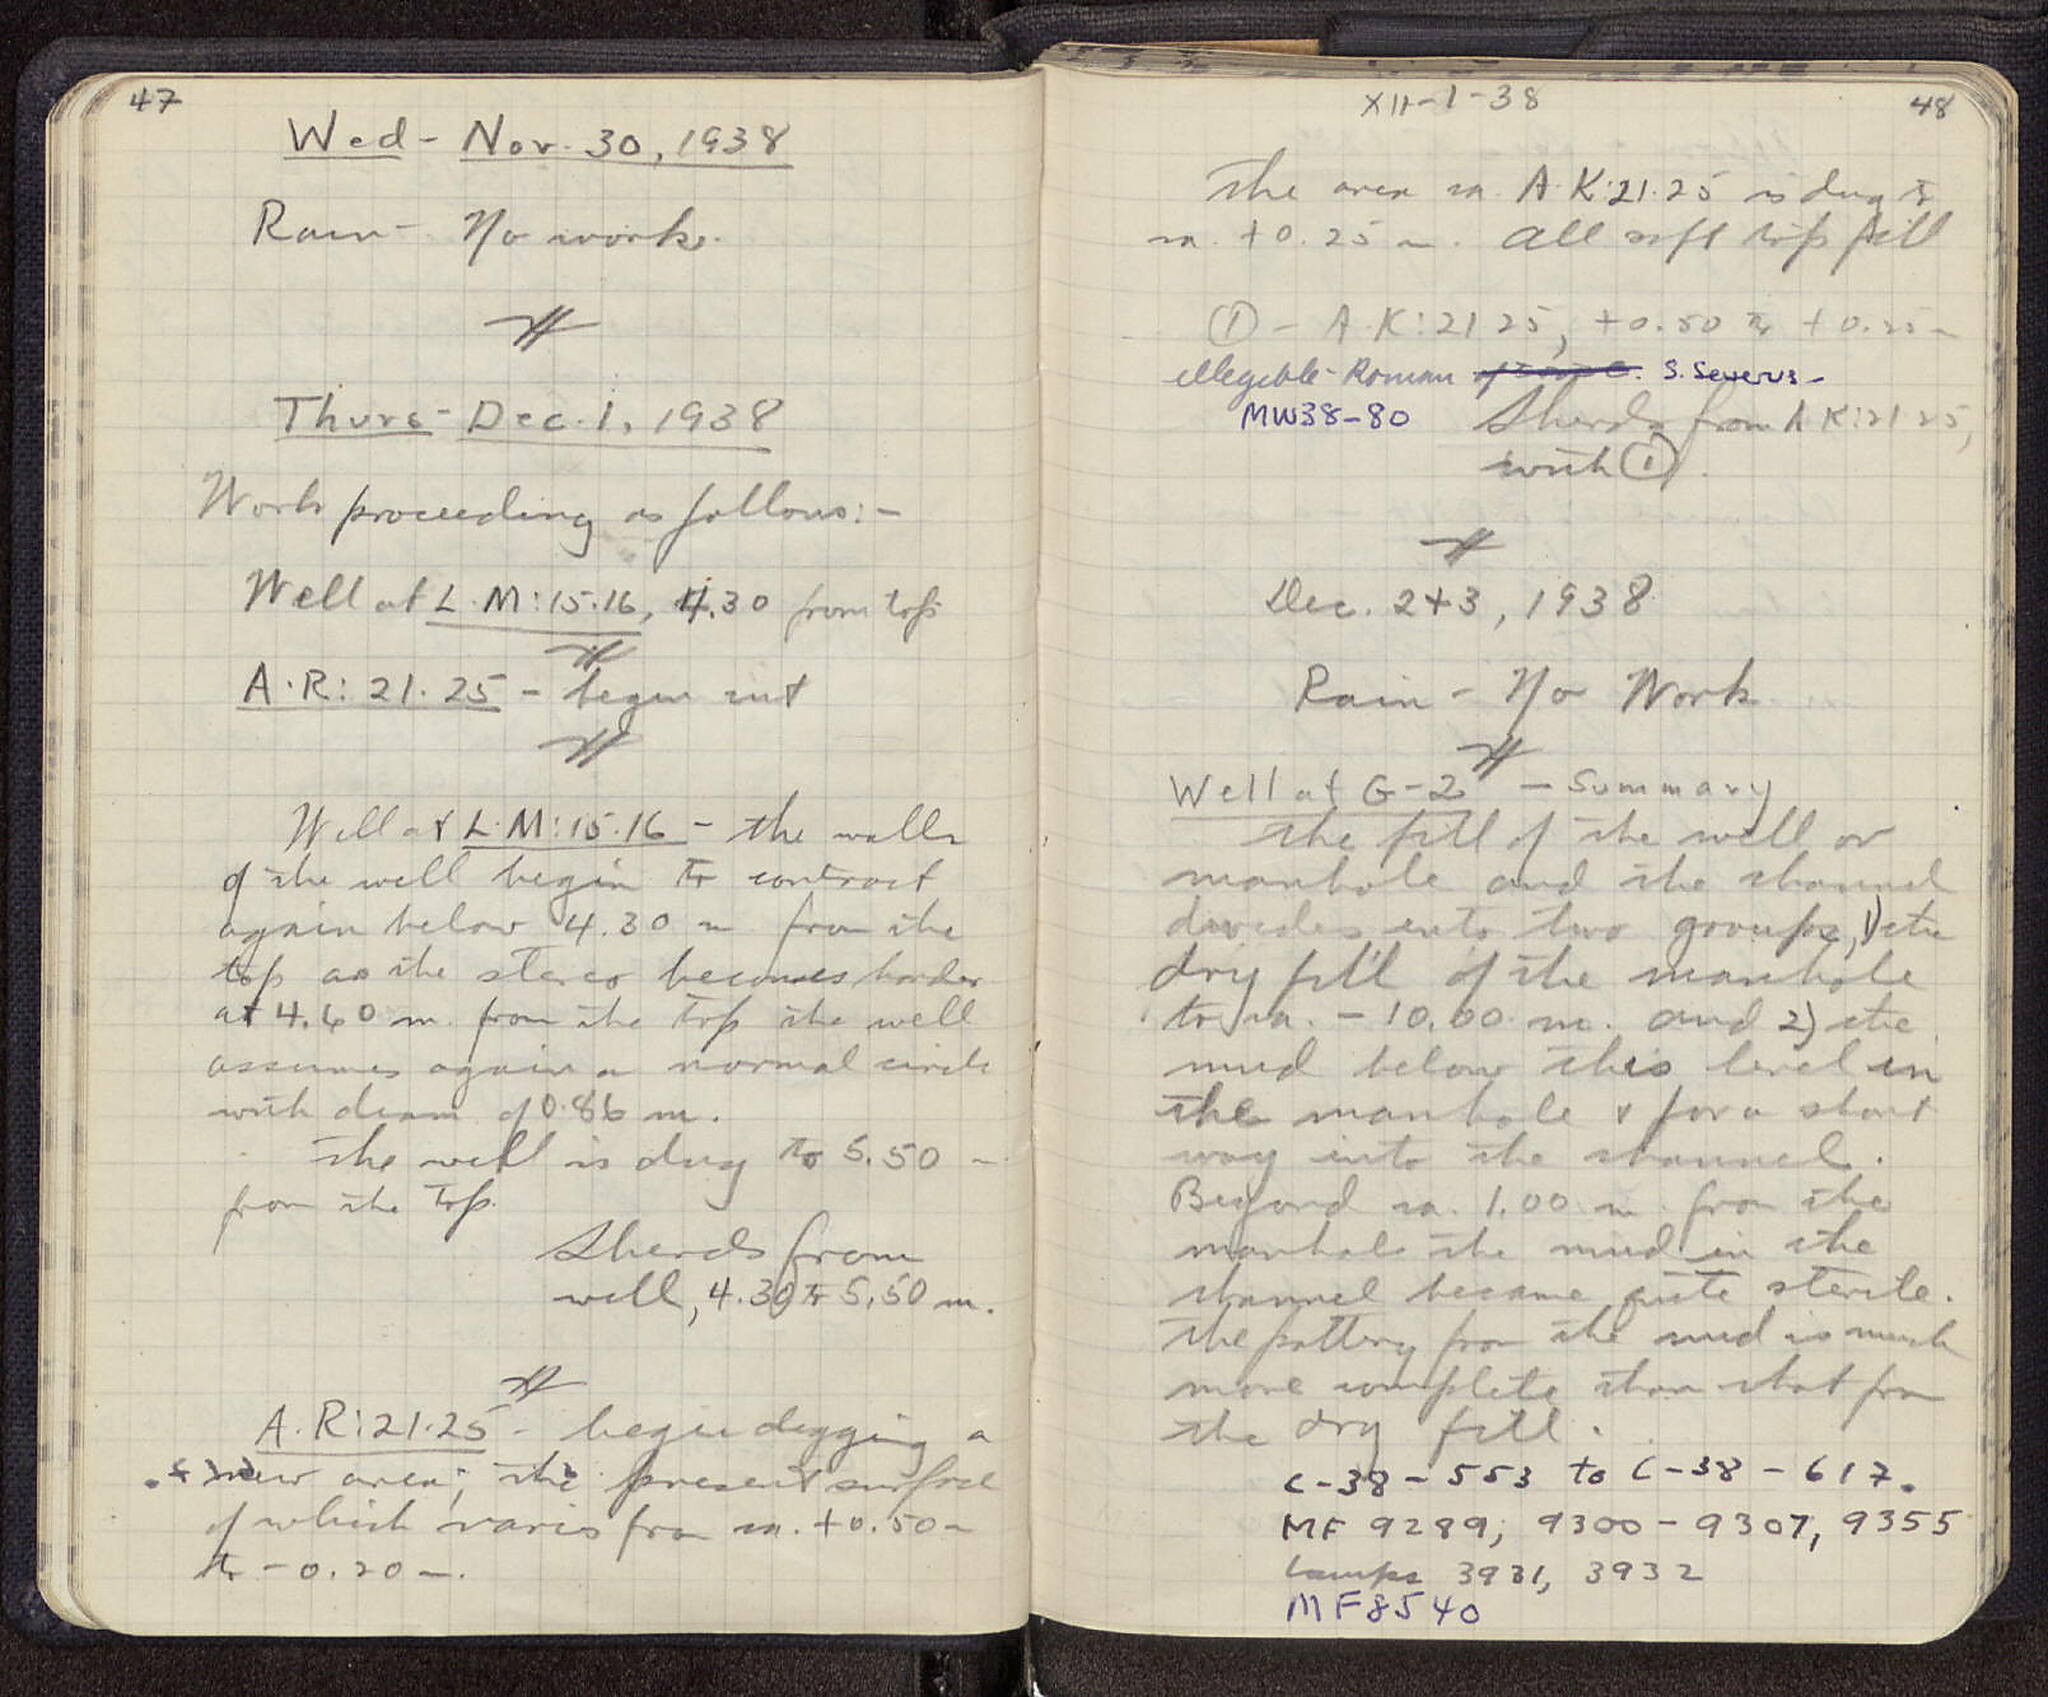 47
Wed - Nov. 30, 1938
Rain - No work.
Thurs - Dec. 1, 1938
Work proceeding as follows: -
Well at L·M:15·16, 4.30 from top
A·R: 21·25 - begun
Well at L·M:15·16 - the walls
of the well begin to contract
again below 4.30 m from the
top as the stereo becomes harder
at 4.60 m. from the top the well
assumes again a normal circle
with diam of 0.86 m.
The well is dug to 5.50 m
from the top.
Sherds from
well, 4.30 to 5.50 m.
A·R:21·25 - begin digging a
new area; the present surface
of which varies from ca. +0.50 m
to -0.20 m.
XII-1-38
48
The area ca. A·K:21·25 is dug to
ca. +0.25 m. All soft top fill
① - A·K:21 25, +0.50 to +0.25 m
illegible - Roman S. Severus -
MW38-80 Sherds from A K:21 25,
with ①.
Dec. 2+3, 1938
Rain - No Work
Well at G-2 - Summary
The fill of the well or
manhole and the channel
divides into two groups, 1) the
dry fill of the manhole
to ca. -10.00 m. and 2) the
mud below this level in
the manhole & for a short
way into the channel.
Beyond ca. 1.00 m. from the
manhole the mud in the
channel became quite sterile.
The pottery from the mud is much
more complete than that from
the dry fill.
C-38-553 to C-38-617.
MF 9289, 9300-9307, 9355
Lamps 3931, 3932
MF8540